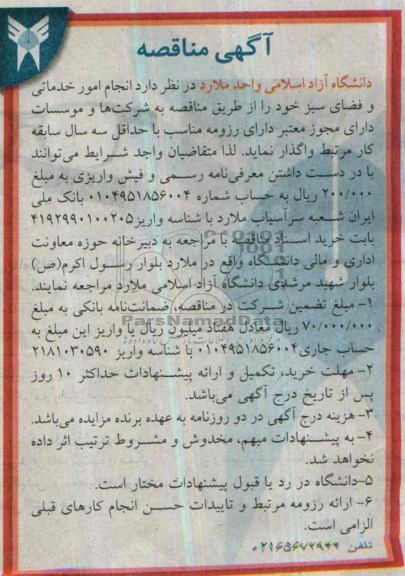 آگهی مناقصه
دانشگاه آزاد اسلامی واحد ملارد در نظر دارد انجام امور خدماتی
و فضای سبز خود را از طریق مناقصه به شرکت‌ها و موسسات
دارای مجوز معتبر دارای رزومه مناسب با حداقل سه سال سابقه
کار مرتبط واگذار نماید. لذا متقاضیان واجد شرایط می‌توانند
با در دست داشتن معرفی‌نامه رسمی و فیش واریزی به مبلغ
۲۰۰/۰۰۰ ریال به حساب شماره ۰۱۰۴۹۵۱۸۵۶۰۰۴ بانک ملی
ایران شعبه سرآسیاب ملارد با شناسه واریز ۴۱۹۲۹۹۰۱۰۰۲۰۵
بابت خرید اسناد مناقصه با مراجعه به دبیرخانه حوزه معاونت
اداری و مالی دانشگاه واقع در ملارد بلوار رسول اکرم(ص)
بلوار شهید مرشدی دانشگاه آزاد اسلامی ملارد مراجعه نمایند.
۱- مبلغ تضمین شرکت در مناقصه، ضمانت‌نامه بانکی به مبلغ
۷۰/۰۰۰/۰۰۰ ریال معادل هفتاد میلیون ریال یا واریز این مبلغ به
حساب جاری ۰۱۰۴۹۵۱۸۵۶۰۰۴ با شناسه واریز ۲۱۸۱۰۳۰۵۹۰
۲- مهلت خرید، تکمیل و ارائه پیشنهادات حداکثر ۱۰ روز
پس از تاریخ درج آگهی می‌باشد.
۳- هزینه درج آگهی در دو روزنامه به عهده برنده مزایده می‌باشد.
۴- به پیشنهادات مبهم، مخدوش و مشروط ترتیب اثر داده
نخواهد شد.
۵-دانشگاه در رد یا قبول پیشنهادات مختار است.
۶- ارائه رزومه مرتبط و تاییدات حسن انجام کارهای قبلی
الزامی است.
تلفن ۰۲۱۶۵۶۷۲۹۴۴
ParsNamadData